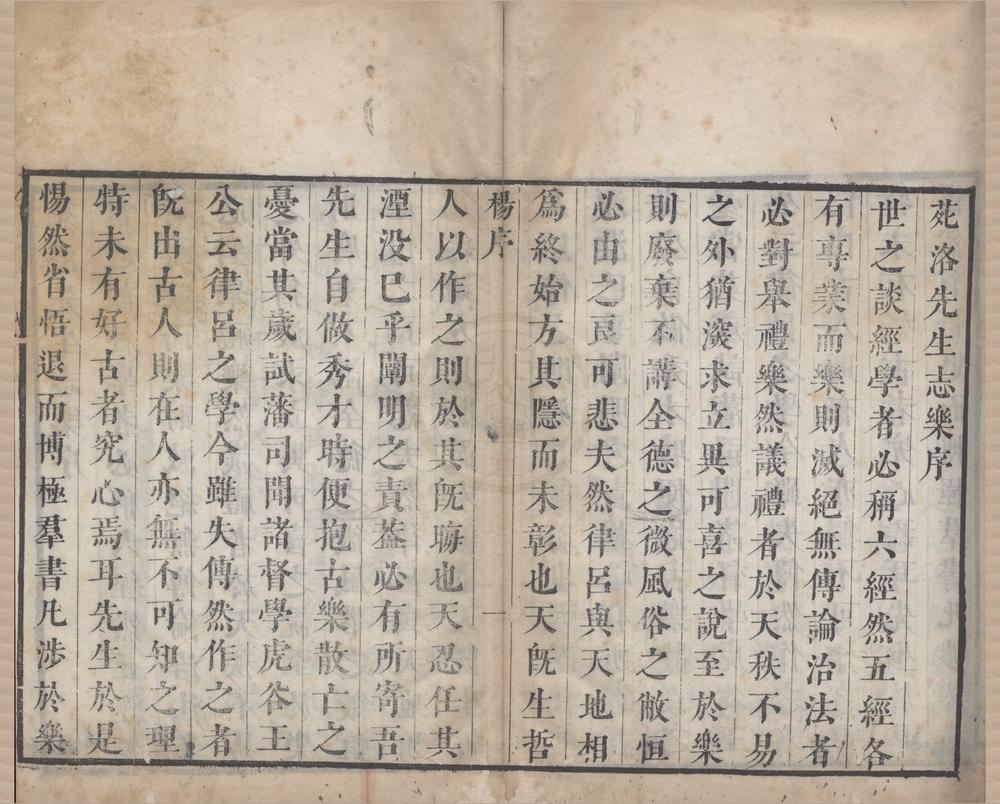 苑洛先生志樂序
世之談經學者必稱六經然五經各
有專業而樂則滅絕無傳論治法者
必對舉禮樂然議禮者於天秩不易
之外猶深求立異可喜之說至於樂
則廢棄不講全德之微風俗之敝恒
必由之良可悲夫然律呂與天地相
爲終始方其隱而未彰也天旣生哲
楊序
一
人以作之則於其旣晦也天忍任其
湮没巳乎闡明之責葢必有所寄吾
先生自做秀才時便抱古樂散亡之
憂當其歲試藩司聞諸督學虎谷王
公云律呂之學今雖失傳然作之者
旣出古人則在人亦無不可知之理
特未有好古者究心焉耳先生於是
惕然省悟退而博極羣書凡涉於樂